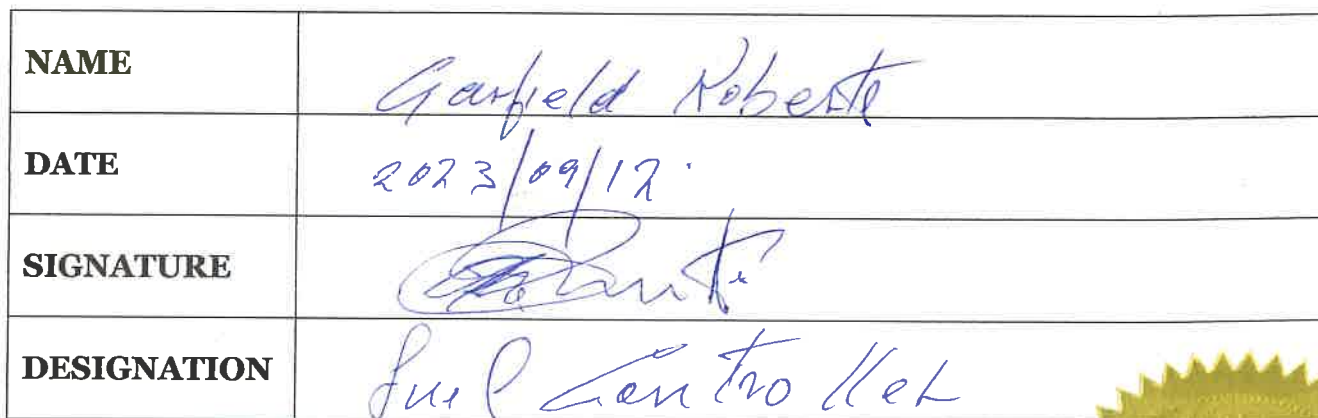 NAME Garfield Roberts
DATE 2023/09/12.
SIGNATURE
DESIGNATION Fuel Controller